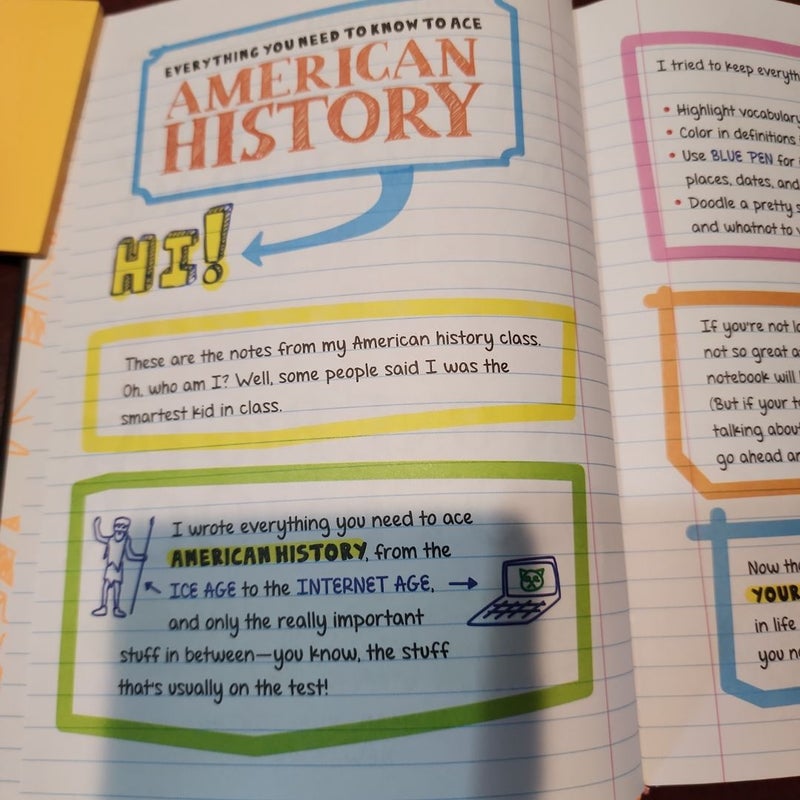 EVERYTHING YOU NEED TO KNOW TO ACE
AMERICAN
HISTORY
HI!
These are the notes from my American history class.
Oh, who am I? Well, some people said I was the
smartest kid in class.
I wrote everything you need to ace
AMERICAN HISTORY, from the
ICE AGE to the INTERNET AGE,
and only the really important
stuff in between—you know, the stuff
that's usually on the test!
I tried to keep everyth
• Highlight vocabulary
• Color in definitions
• Use BLUE PEN for
places, dates, and
• Doodle a pretty
and whatnot to
If you're not
not so great
notebook will
(But if your
talking about
go ahead
Now
YOUR
in life
you